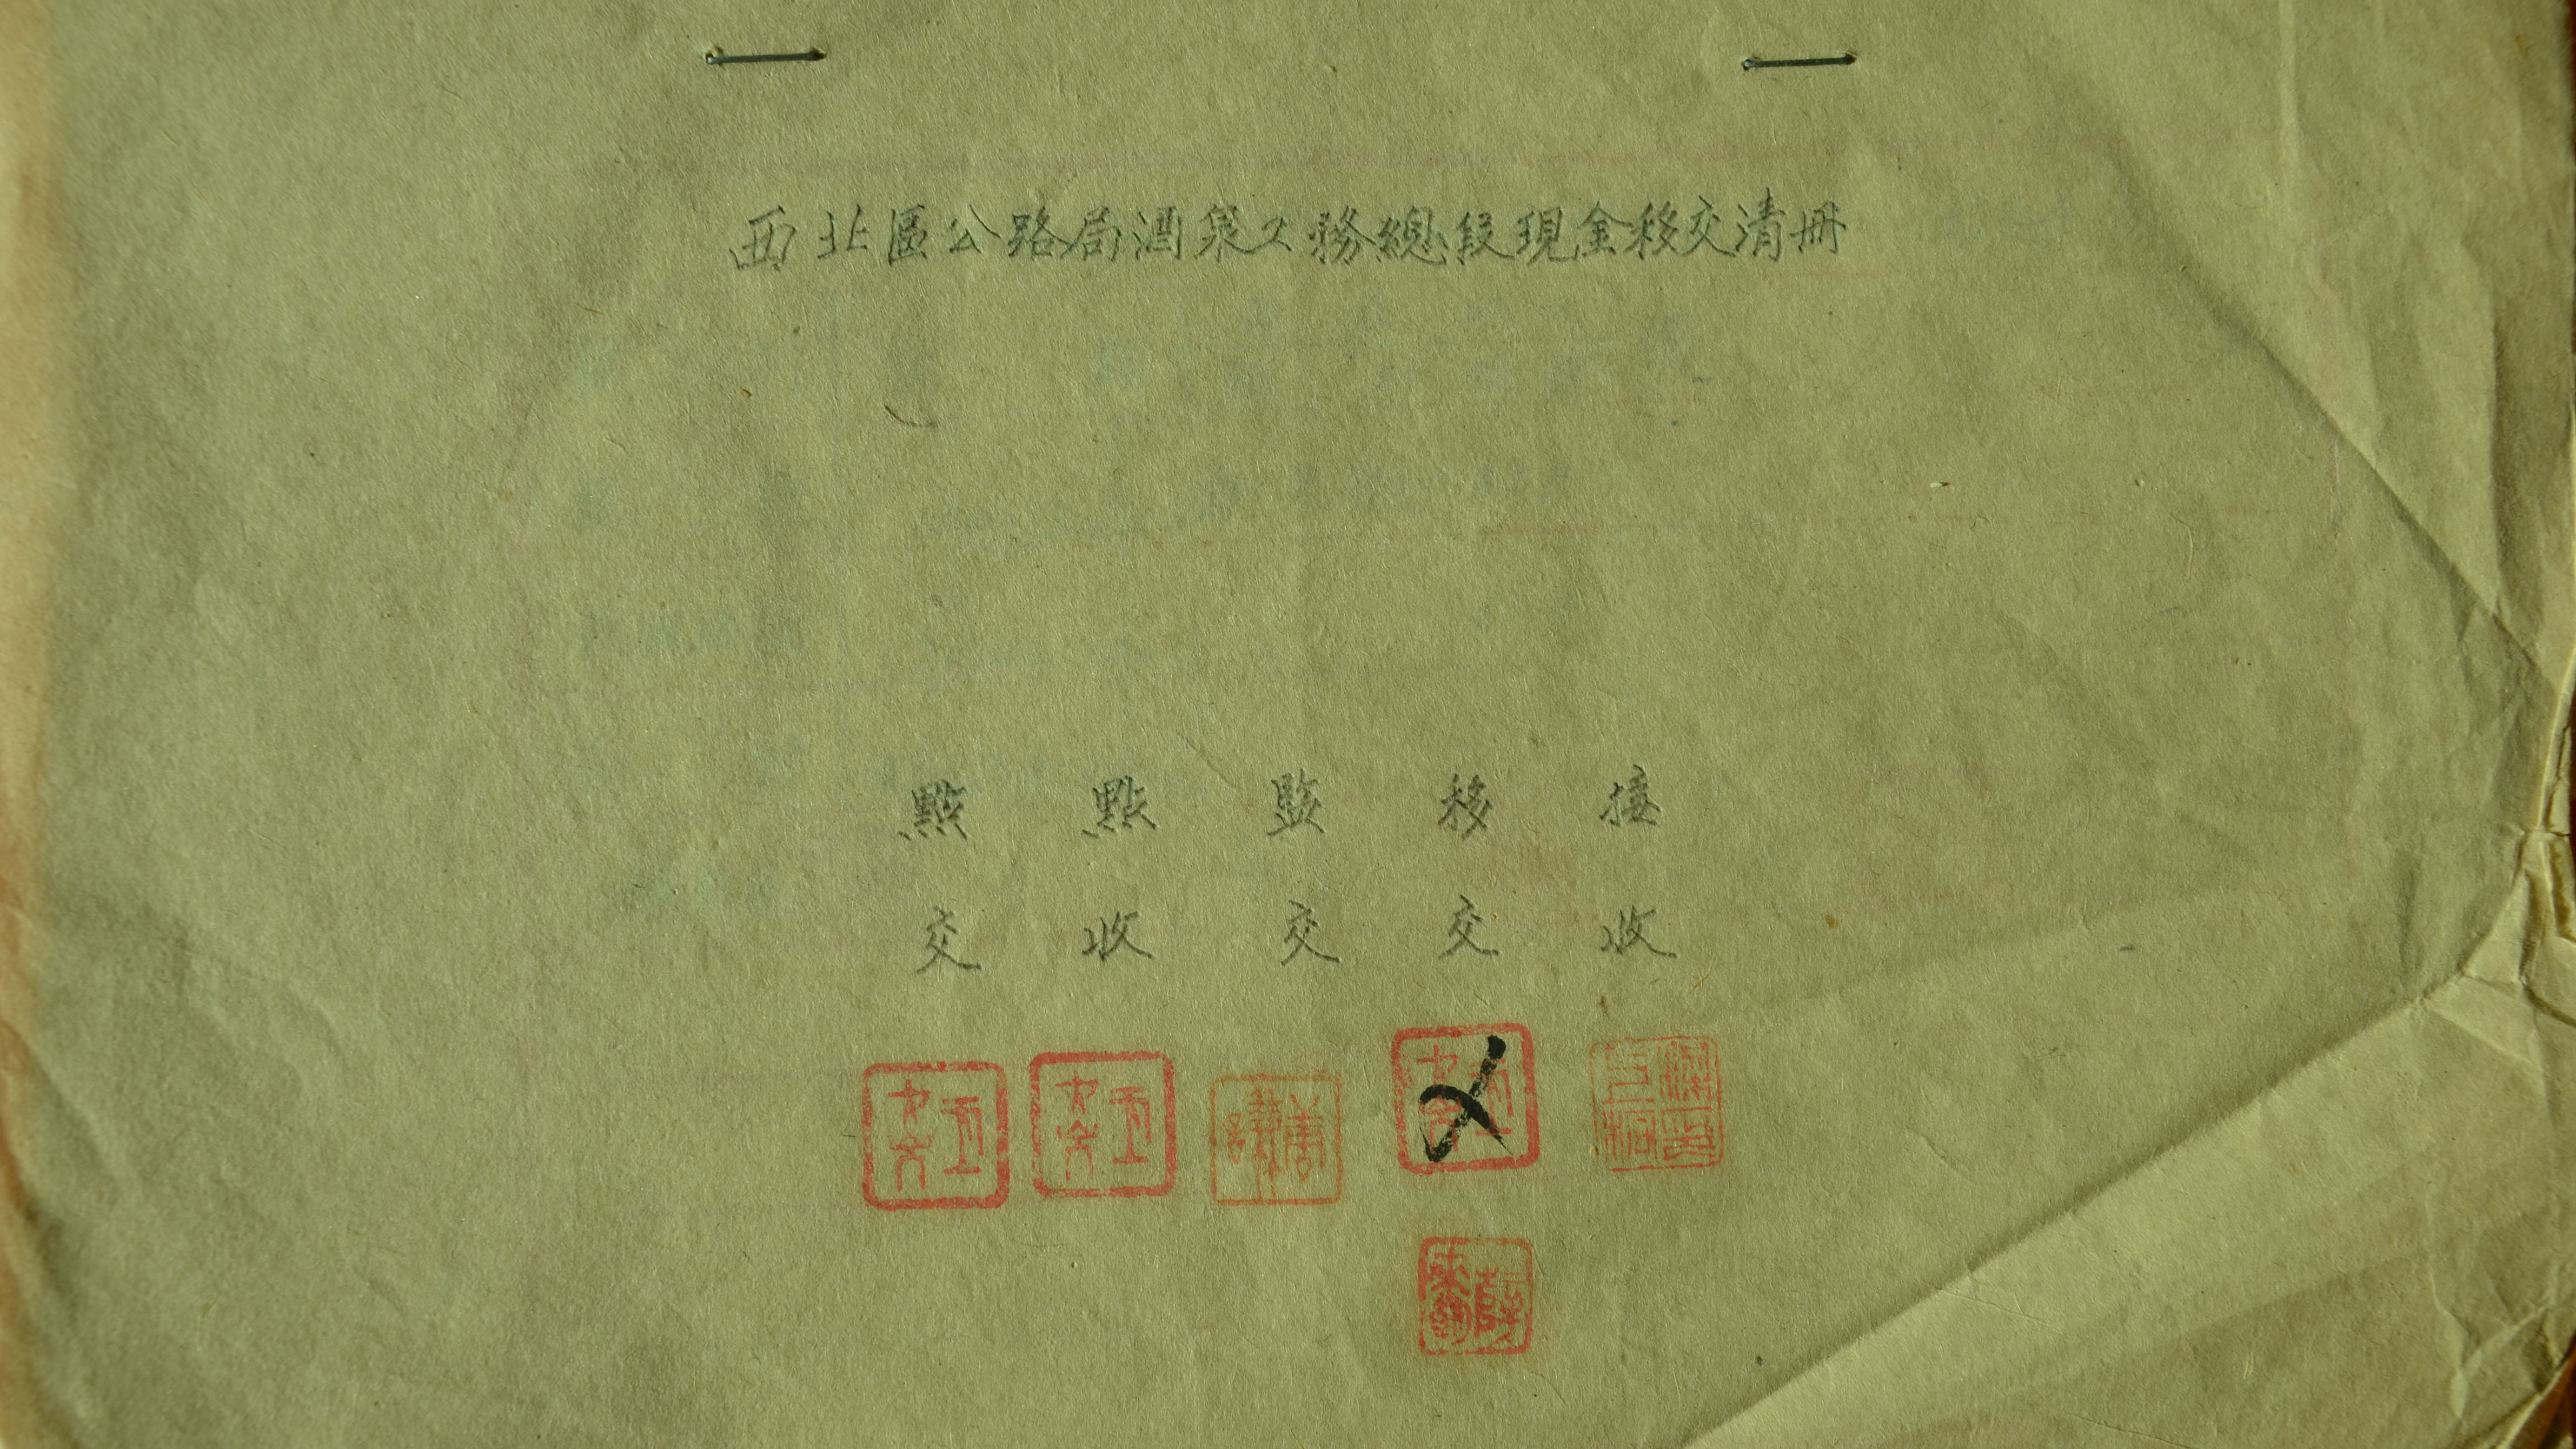 西北區公路局酒泉工務總段現金移交清冊
接收
移交
監交
點收
點交